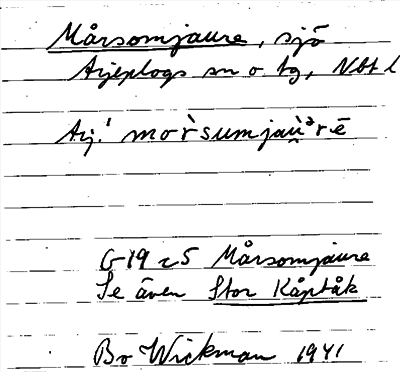 Mårsomjaure, sjö
Arjeplogs sn o tg, Nbt l
Arj.' morsumjauᵊrē
G-19 c5 Mårsomjaure
Se även Stor Kåptåk
Bo Wickman 1941